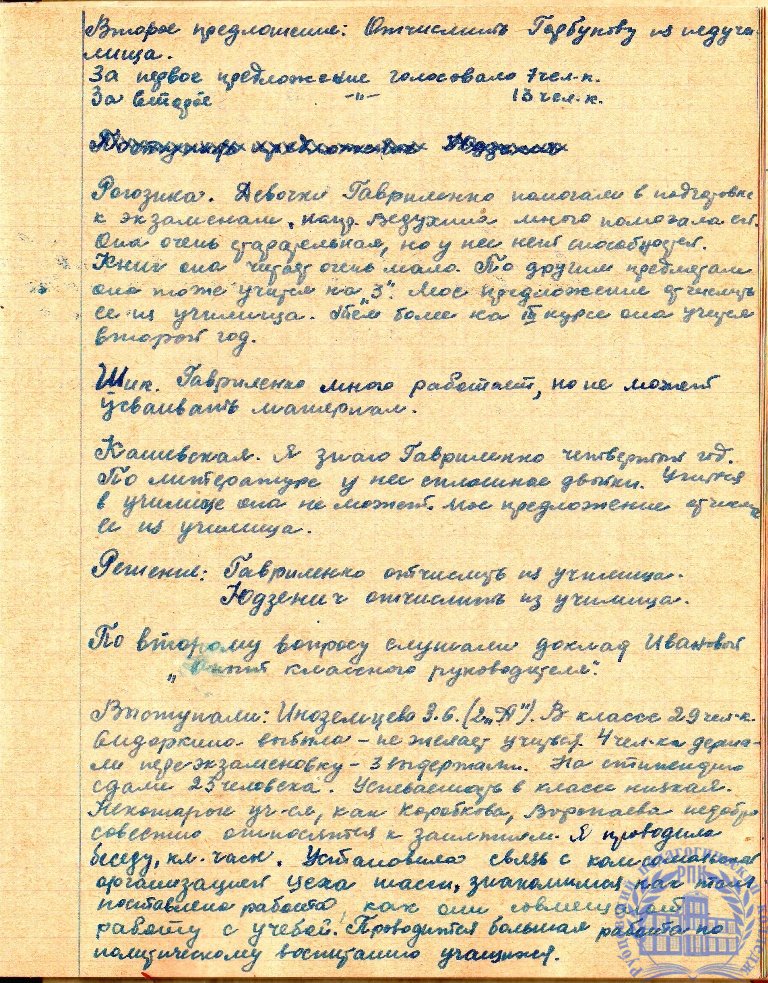 Второе предложение: Отчислить Горбунову из педучи-
лища.
За первое предложение голосовало 7 чел-к.
За второе —"— 13 чел-к.
Рогозика. Девочки Гавриленко помогали в подготовке
к экзаменам, напр. Ведухина много помогала ей.
Она очень старательная, но у нее нет способностей.
Книг она читает очень мало. По другим предметам
она тоже учится на „3". Мое предложение отчислить
ее из училища. Тем более на III курсе она учится
второй год.
Шик. Гавриленко много работает, но не может
усваивать материал.
Кашевская. Я знаю Гавриленко четвертый год.
По литературе у нее сплошные двойки. Учиться
в училище она не может. Мое предложение отчислить
ее из училища.
Решение: Гавриленко отчислить из училища.
Юдзенич отчислить из училища.
По второму вопросу слушали доклад Ивановой
„Опыт классного руководителя".
Выступали: Иноземцева З.Б. (2„А"). В классе 29 чел-к.
Сидоркина выбыла – не желает учиться. 4 чел-ка держа-
ли переэкзаменовку – 3 выдержали. На стипендию
сдали 25 человека. Успеваемость в классе низкая.
Некоторые уч-ся, как Коробкова, Воропаева недобро
совестно относятся к занятиям. Я проводила
беседу, кл. часы. Установила связь с комсомольской
организацией цеха шасси, знакомимся как там
поставлена работа, как они совмещают
работу с учебой. Проводится большая работа по
политическому воспитанию учащихся.
РПК